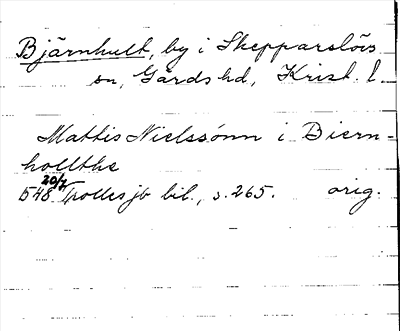 Bjärnhult, by i Skepparslövs
sn, Gärds hd, Krist. l.
Mattis Nielssönn i Biern-
hollthe
1548 20/7 sjb bil., s. 265. orig.